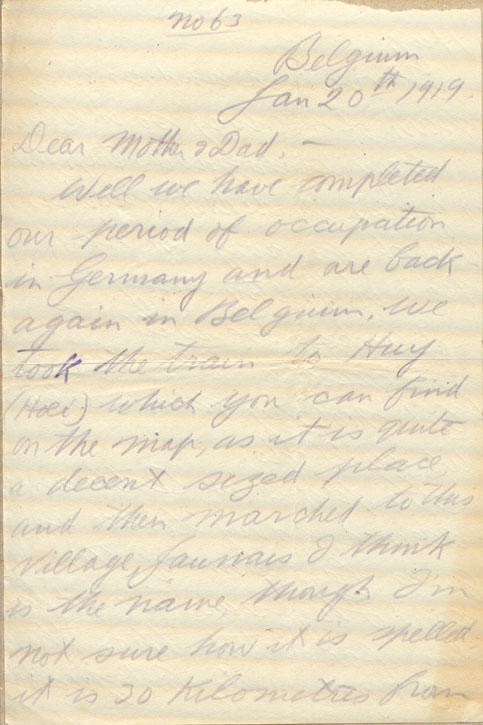 no 63
Belgium
Jan 20th 1919.
Dear Mother & Dad. –
Well we have completed
our period of occupation
in Germany and are back
again in Belgium. We
took the train to Huy
(Hoei) which you can find
on the map, as it is quite
a decent sized place,
and then marched to this
village, I think
is the name, though I'm
not sure how it is spelled.
it is 30 Kilometres from